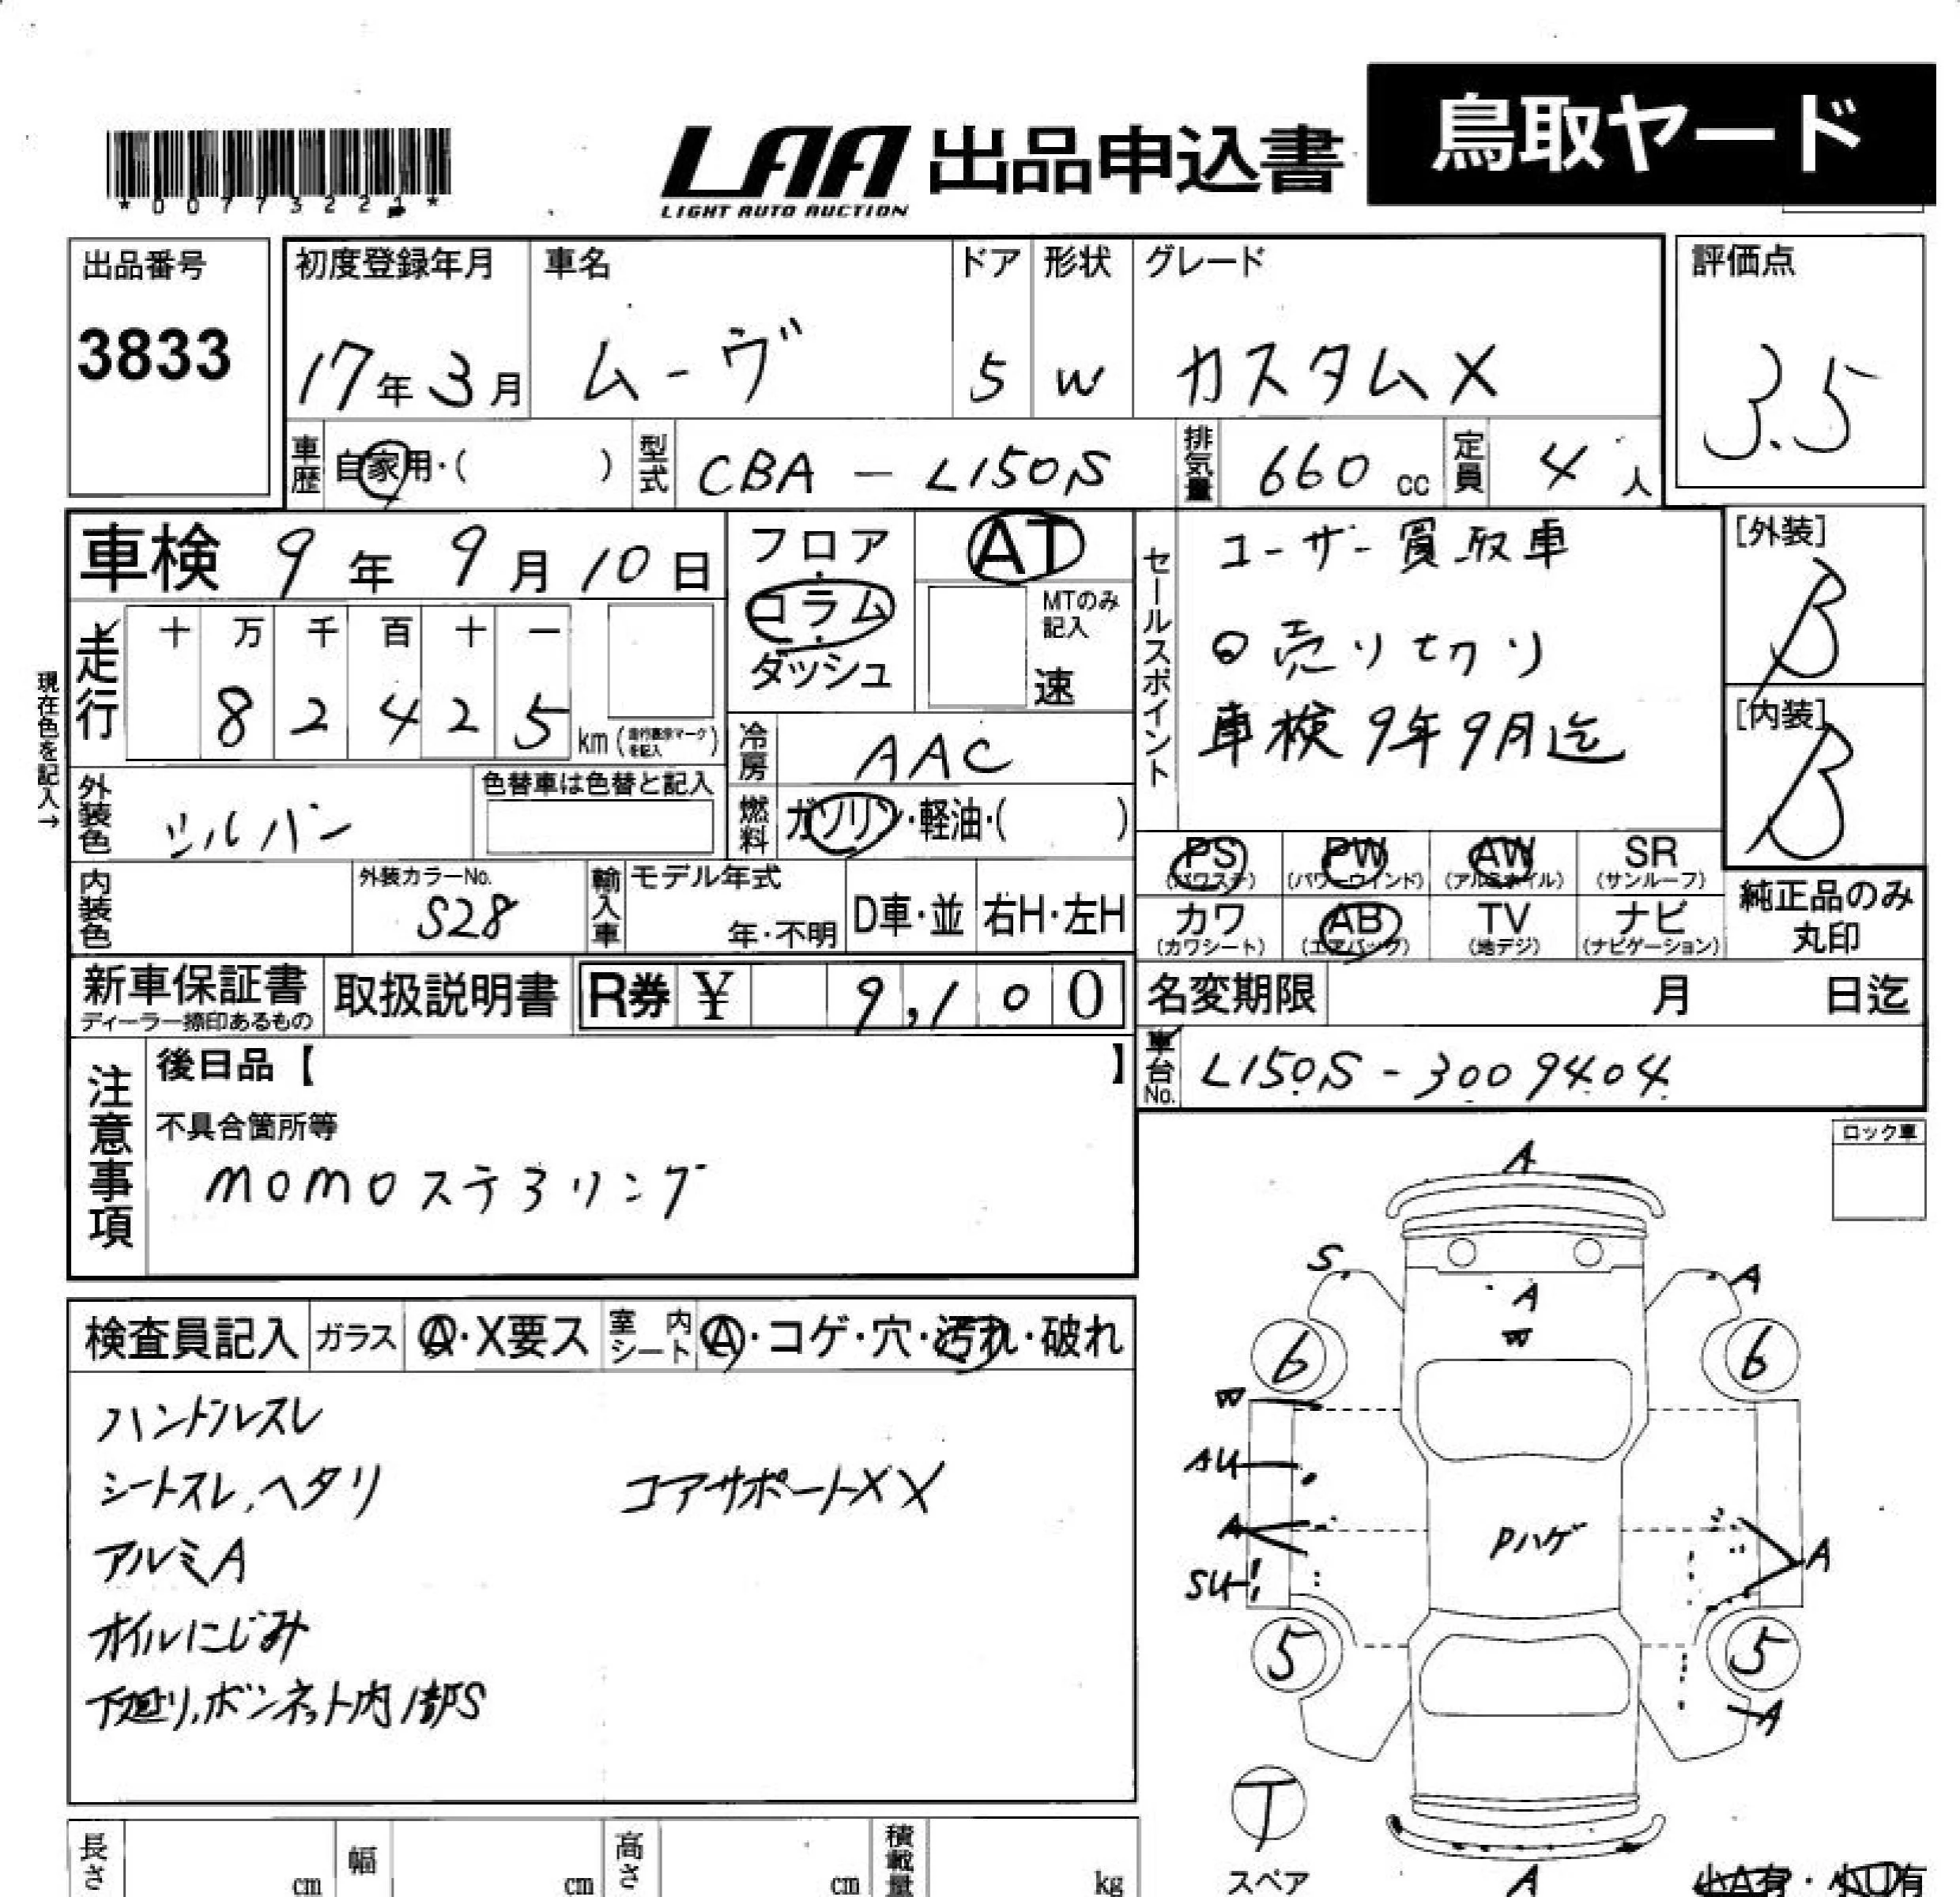 鳥取ヤード
LAA 出品申込書
LIGHT AUTO AUCTION
出品番号
3833
初度登録年月
17年3月
車名
ムーヴ
ドア
5
形状
W
グレード
カスタムX
評価点
3.5
車歴
自家用・( )
型式
CBA - L150S
排気量
660 cc
定員
4人
車検 9年 9月 10日
フロア
・
コラム
・
ダッシュ
AT
MTのみ
記入
速
セールスポイント
ユーザー買取車
売り切り
車検9年9月迄
[外装]
B
[内装]
B
現在色を記入→
走行
十 万 千 百 十 一
8 2 4 2 5
km(走行表示マークを記入)
冷房
AAC
外装色
シルバー
色替車は色替と記入
燃料
ガソリン・軽油・( )
内装色
外装カラーNo.
S28
輸入車
モデル年式
年・不明
D車・並
右H・左H
PS
(パワステ)
PW
(パワーウインド)
AW
(アルミホイル)
SR
(サンルーフ)
カワ
(カワシート)
AB
(エアバッグ)
TV
(地デジ)
ナビ
(ナビゲーション)
純正品のみ
丸印
新車保証書
ディーラー捺印あるもの
取扱説明書
R券 ¥ 9,100
名変期限 月 日迄
車台No.
L150S-3009404
注意事項
後日品【 】
不具合箇所等
momoステアリング
ロック車
検査員記入
ガラス
A・X要ス
室内シート
A・コゲ・穴・汚れ・破れ
ハンドルスレ
シートスレ、ヘタリ
コアサポートXX
アルミA
オイルにじみ
下廻り、ボンネット内1部S
A
S
A
A
W
6
6
W
AU
A
Pハゲ
A
SU
5
5
A
T
スペア
A
長さ
cm
幅
cm
高さ
cm
積載量
kg
小A有・小U有